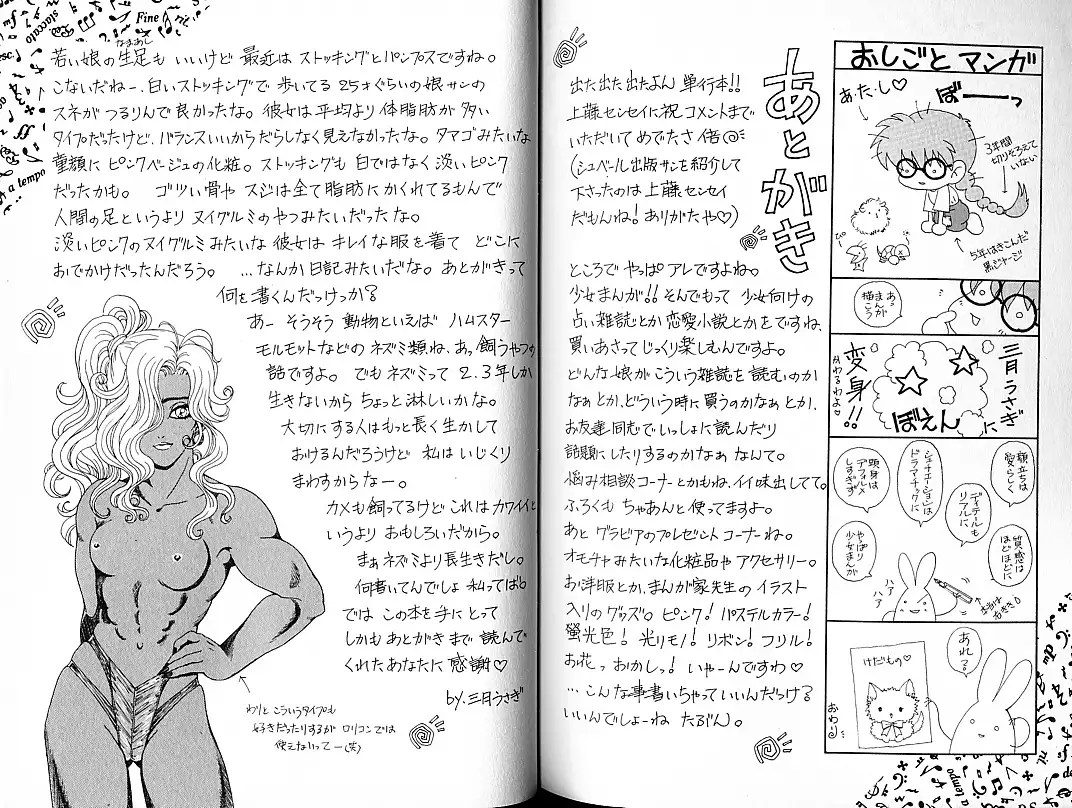 おしごと マンガ
あ.た.し♡
ぼーーっ
3年間
切りそろえて
いない
5年はきこんだ
黒ジャージ
あっ
まんが
描こう
三月うさぎ
に
変身!!
かわるわよ♡
ぼえん
顔立ちは
愛らしく
ディテルも
リアルに
シチュエーションは
ドラマチックに
頭身は
デフォルメ
しすぎず
質感は
ほどほどに
やっぱり
少女まんが
ハァ
ハァ
あれ?
けだもの♡
おわり
あとがき
出た出た出たよん 単行本!!
上藤センセイに祝コメントまで
いただいて めでたさ倍@
(シュベール出版サンを紹介して
下さったのは上藤センセイ
だもんね! ありがたや♡)
ところで やっぱ アレですよね。
少女まんが!! そんでもって 少女向けの
占い雑誌とか 恋愛小説とかをですね、
買いあさって じっくり楽しむんですよ。
どんな娘が こういう雑誌を 読むのか
なぁ とか、どういう時に 買うのかなぁ とか、
お友達同志で いっしょに 読んだり
話題にしたりするのかなぁ なんて。
悩み相談コーナーとかもね、イイ味出してて。
ふろくも ちゃあんと 使ってますよ。
あと グラビアのプレゼント コーナーね。
オモチャ みたいな化粧品や アクセサリー。
お洋服とか、まんが家先生の イラスト
入りの グッズ。 ピンク! パステルカラー!
螢光色! 光りモノ! リボン! フリル!
お花っ おかしっ! いゃーんですわ♡
…こんな事書いちゃって いいんだらける
いいんでしょーね たぶん。
若い娘の生足も いいけど 最近は ストッキングとパンプスですね。
なまあし
こないだねー、白いストッキングで 歩いてる 25才ぐらいの 娘サンの
スネが つるりんで 良かったな。 彼女は 平均より 体脂肪が 多い
タイプだったけど、バランスいいからだらしなく見えなかったな。タマゴみたいな
童顔に ピンクベージュの化粧。ストッキングも 白ではなく 淡いピンク
だったかも。 ゴツい骨や スジは全て脂肪にかくれてるもんで
人間の足というより ヌイグルミのやつみたいだったな。
淡いピンクの ヌイグルミ みたいな 彼女は キレイな服を 着て どこに
おでかけだったんだろう。 …なんか 日記みたいだな。あとがきって
何を書くんだっけっか?
あー そうそう 動物といえば ハムスター
モルモットなどの ネズミ類ね、あっ 飼うやつの
話ですよ。 でも ネズミって 2.3年しか
生きないから ちょっと 淋しいかな。
大切にする人はもっと長く生かして
おけるんだろうけど 私はいじくり
まわすからなー。
カメも飼ってるけど これはカワイイと
いうより おもしろいだから。
まぁ ネズミより長生きだし。
何書いてんでしょ 私ってば。
では この本を手にとって
しかも あとがきまで 読んで
くれた あなたに 感謝♡
by.三月うさぎ
わりと こういうタイプも
好きだったりするが ロリコンでは
使えないってー(笑)
staccato
Fine
rit.
a tempo
tempo